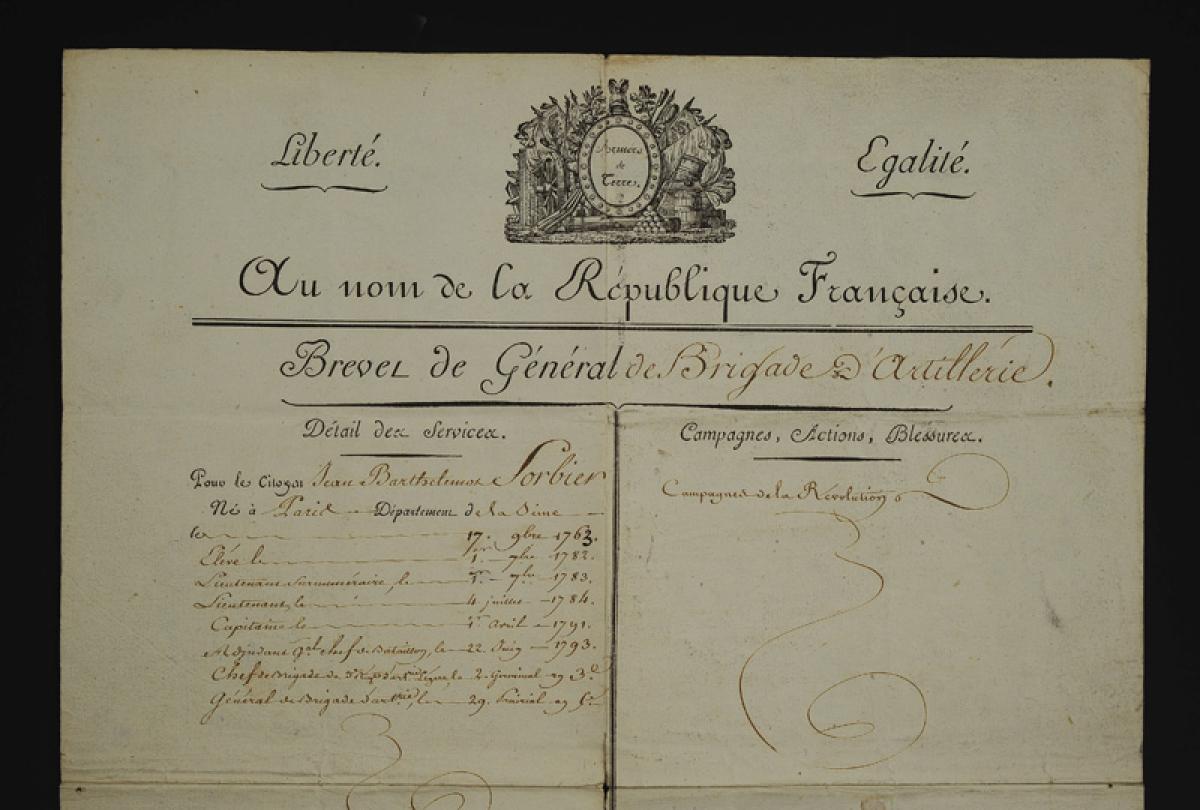 Liberté.
Armées
de
Terre.
Egalité.
Au nom de la République Française.
Brevet de Général de Brigade D'Artillérie.
Détail des Services.
Pour le Citoyen Jean Barthelemot Sorbier
Né à Paris Département de la Seine
le 17. 9bre 1763.
Elève le 1er 7bre 1782.
Lieutenant Surnuméraire, le 1er 7bre 1783.
Lieutenant, le 4 juillet 1784.
Capitaine le 1er Avril 1791.
Adjudant Gal chef de Bataillon, le 22 Juin 1793.
Chef de Brigade du 3e Regt d'artrie Légère le 2 Germinal an 3e
Général de Brigade d'artrie, le 29 Prairial an 5e
Campagnes, Actions, Blessures.
Campagnes de la Révolution